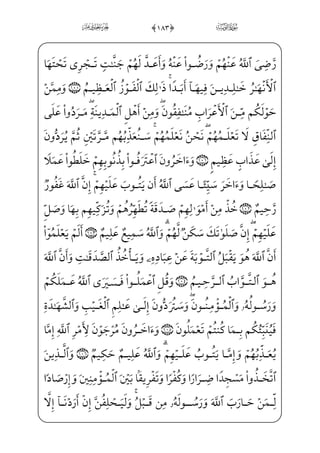 رَّضِىَ ٱللَّهُ عَنْهُمْ وَرَضُوا۟ عَنْهُ وَأَعَدَّ لَهُمْ جَنَّـٰتٍ تَجْرِى تَحْتَهَا
ٱلْأَنْهَـٰرُ خَـٰلِدِينَ فِيهَآ أَبَدًا ۚ ذَٰلِكَ ٱلْفَوْزُ ٱلْعَظِيمُ ۝ وَمِمَّنْ
حَوْلَكُم مِّنَ ٱلْأَعْرَابِ مُنَـٰفِقُونَ ۖ وَمِنْ أَهْلِ ٱلْمَدِينَةِ ۖ مَرَدُوا۟ عَلَى
ٱلنِّفَاقِ لَا تَعْلَمُهُمْ ۖ نَحْنُ نَعْلَمُهُمْ ۚ سَنُعَذِّبُهُم مَّرَّتَيْنِ ثُمَّ يُرَدُّونَ
إِلَىٰ عَذَابٍ عَظِيمٍ ۝ وَءَاخَرُونَ ٱعْتَرَفُوا۟ بِذُنُوبِهِمْ خَلَطُوا۟ عَمَلًا
صَـٰلِحًا وَءَاخَرَ سَيِّئًا عَسَى ٱللَّهُ أَن يَتُوبَ عَلَيْهِمْ ۚ إِنَّ ٱللَّهَ غَفُورٌ
رَّحِيمٌ ۝ خُذْ مِنْ أَمْوَٰلِهِمْ صَدَقَةً تُطَهِّرُهُمْ وَتُزَكِّيهِم بِهَا وَصَلِّ
عَلَيْهِمْ ۖ إِنَّ صَلَوٰتَكَ سَكَنٌ لَّهُمْ ۗ وَٱللَّهُ سَمِيعٌ عَلِيمٌ ۝ أَلَمْ يَعْلَمُوٓا۟
أَنَّ ٱللَّهَ هُوَ يَقْبَلُ ٱلتَّوْبَةَ عَنْ عِبَادِهِۦ وَيَأْخُذُ ٱلصَّدَقَـٰتِ وَأَنَّ ٱللَّهَ
هُوَ ٱلتَّوَّابُ ٱلرَّحِيمُ ۝ وَقُلِ ٱعْمَلُوا۟ فَسَيَرَى ٱللَّهُ عَمَلَكُمْ
وَرَسُولُهُۥ وَٱلْمُؤْمِنُونَ ۖ وَسَتُرَدُّونَ إِلَىٰ عَـٰلِمِ ٱلْغَيْبِ وَٱلشَّهَـٰدَةِ
فَيُنَبِّئُكُم بِمَا كُنتُمْ تَعْمَلُونَ ۝ وَءَاخَرُونَ مُرْجَوْنَ لِأَمْرِ ٱللَّهِ إِمَّا
يُعَذِّبُهُمْ وَإِمَّا يَتُوبُ عَلَيْهِمْ ۗ وَٱللَّهُ عَلِيمٌ حَكِيمٌ ۝ وَٱلَّذِينَ
ٱتَّخَذُوا۟ مَسْجِدًا ضِرَارًا وَكُفْرًا وَتَفْرِيقًۢا بَيْنَ ٱلْمُؤْمِنِينَ وَإِرْصَادًا
لِّمَنْ حَارَبَ ٱللَّهَ وَرَسُولَهُۥ مِن قَبْلُ ۚ وَلَيَحْلِفُنَّ إِنْ أَرَدْنَآ إِلَّا